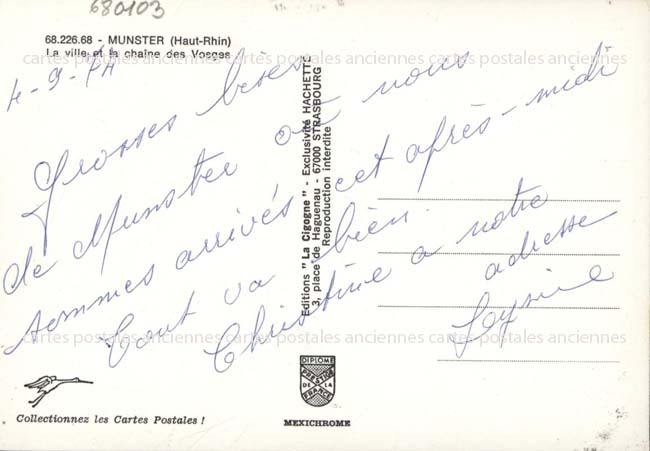 680103
68.226.68 - MUNSTER (Haut-Rhin)
La ville et la chaîne des Vosges
cartes postales anciennes cartes postales anciennes cartes postales anciennes
4-9-74
Grosses bises
de Munster où nous
sommes arrivés cet après-midi
Tout va bien.
Christine a notre
adresse
Editions "La Cigogne" - Exclusivité HACHETTE
3, place de Haguenau - 67000 STRASBOURG
Reproduction interdite
cartes postales anciennes cartes postales anciennes cartes postales anciennes
DIPLOME
PRESTIGE
DE LA
FRANCE
Collectionnez les Cartes Postales !
MEXICHROME